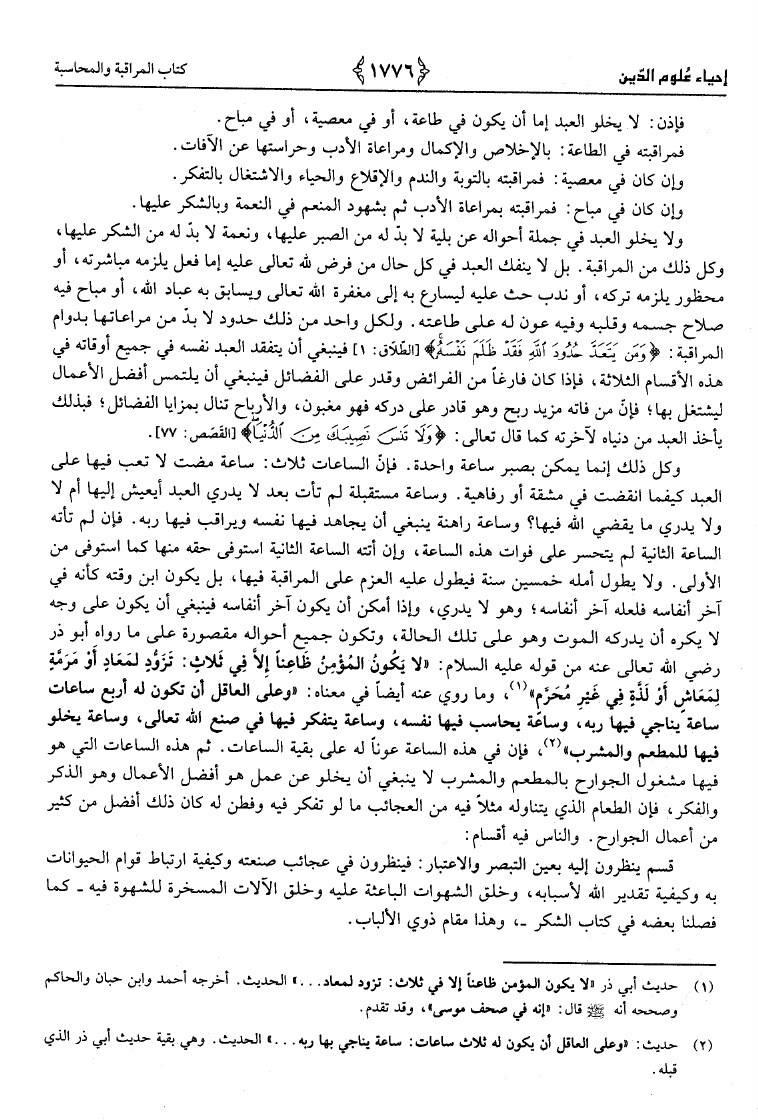 إحياء عُلوم الدّين ﴿١٧٧٦﴾ كتاب المراقبة والمحاسبة
فإذن: لا يخلو العبد إما أن يكون في طاعة، أو في معصية، أو في مباح.
فمراقبته في الطاعة: بالإخلاص والإكمال ومراعاة الأدب وحراستها عن الآفات.
وإن كان في معصية: فمراقبته بالتوبة والندم والإقلاع والحياء والاشتغال بالتفكر.
وإن كان في مباح: فمراقبته بمراعاة الأدب ثم بشهود المنعم في النعمة وبالشكر عليها.
ولا يخلو العبد في جملة أحواله عن بلية لا بدّ له من الصبر عليها، ونعمة لا بدّ له من الشكر عليها،
وكل ذلك من المراقبة. بل لا ينفك العبد في كل حال من فرض لله تعالى عليه إما فعل يلزمه مباشرته، أو
محظور يلزمه تركه، أو ندب حث عليه ليسارع به إلى مغفرة الله تعالى ويسابق به عباد الله، أو مباح فيه
صلاح جسمه وقلبه وفيه عون له على طاعته. ولكل واحد من ذلك حدود لا بدّ من مراعاتها بدوام
المراقبة: ﴿وَمَن يَتَعَدَّ حُدُودَ اللَّهِ فَقَدْ ظَلَمَ نَفْسَهُ﴾ [الطّلَاق: ١] فينبغي أن يتفقد العبد نفسه في جميع أوقاته في
هذه الأقسام الثلاثة، فإذا كان فارغاً من الفرائض وقدر على الفضائل فينبغي أن يلتمس أفضل الأعمال
ليشتغل بها؛ فإنّ من فاته مزيد ربح وهو قادر على دركه فهو مغبون، والأرباح تنال بمزايا الفضائل؛ فبذلك
يأخذ العبد من دنياه لآخرته كما قال تعالى: ﴿وَلَا تَنسَ نَصِيبَكَ مِنَ الدُّنْيَا﴾ [القَصَص: ٧٧].
وكل ذلك إنما يمكن بصبر ساعة واحدة. فإنّ الساعات ثلاث: ساعة مضت لا تعب فيها على
العبد كيفما انقضت في مشقة أو رفاهية. وساعة مستقبلة لم تأت بعد لا يدري العبد أيعيش إليها أم لا
ولا يدري ما يقضي الله فيها؟ وساعة راهنة ينبغي أن يجاهد فيها نفسه ويراقب فيها ربه. فإن لم تأته
الساعة الثانية لم يتحسر على فوات هذه الساعة، وإن أتته الساعة الثانية استوفى حقه منها كما استوفى من
الأولى. ولا يطول أمله خمسين سنة فيطول عليه العزم على المراقبة فيها، بل يكون ابن وقته كأنه في
آخر أنفاسه فلعله آخر أنفاسه؛ وهو لا يدري، وإذا أمكن أن يكون آخر أنفاسه فينبغي أن يكون على وجه
لا يكره أن يدركه الموت وهو على تلك الحالة، وتكون جميع أحواله مقصورة على ما رواه أبو ذر
رضي الله تعالى عنه من قوله عليه السلام: «لا يَكُونُ المُؤمِنُ ظَاعِناً إلاَّ فِي ثَلاثٍ: تَزَوُّدٍ لمَعَادٍ أَوْ مَرَمَّةٍ
لِمَعَاشٍ أَوْ لَذَّةٍ فِي غَيْرِ مُحَرَّمٍ»(١)، وما روي عنه أيضاً في معناه: «وعلى العاقل أن تكون له أربع ساعات
ساعة يناجي فيها ربه، وساعة يحاسب فيها نفسه، وساعة يتفكر فيها في صنع الله تعالى، وساعة يخلو
فيها للمطعم والمشرب»(٢)، فإن في هذه الساعة عوناً له على بقية الساعات. ثم هذه الساعات التي هو
فيها مشغول الجوارح بالمطعم والمشرب لا ينبغي أن يخلو عن عمل هو أفضل الأعمال وهو الذكر
والفكر، فإن الطعام الذي يتناوله مثلاً فيه من العجائب ما لو تفكر فيه وفطن له كان ذلك أفضل من كثير
من أعمال الجوارح. والناس فيه أقسام:
قسم ينظرون إليه بعين التبصر والاعتبار: فينظرون في عجائب صنعته وكيفية ارتباط قوام الحيوانات
به وكيفية تقدير الله لأسبابه، وخلق الشهوات الباعثة عليه وخلق الآلات المسخرة للشهوة فيه ـ كما
فصلنا بعضه في كتاب الشكر ـ، وهذا مقام ذوي الألباب.
(١) حديث أبي ذر «لا يكون المؤمن ظاعناً إلا في ثلاث: تزود لمعاد...» الحديث. أخرجه أحمد وابن حبان والحاكم
وصححه أنه ﷺ قال: «إنه في صحف موسى»، وقد تقدم.
(٢) حديث: «وعلى العاقل أن يكون له ثلاث ساعات: ساعة يناجي بها ربه...» الحديث. وهي بقية حديث أبي ذر الذي
قبله.